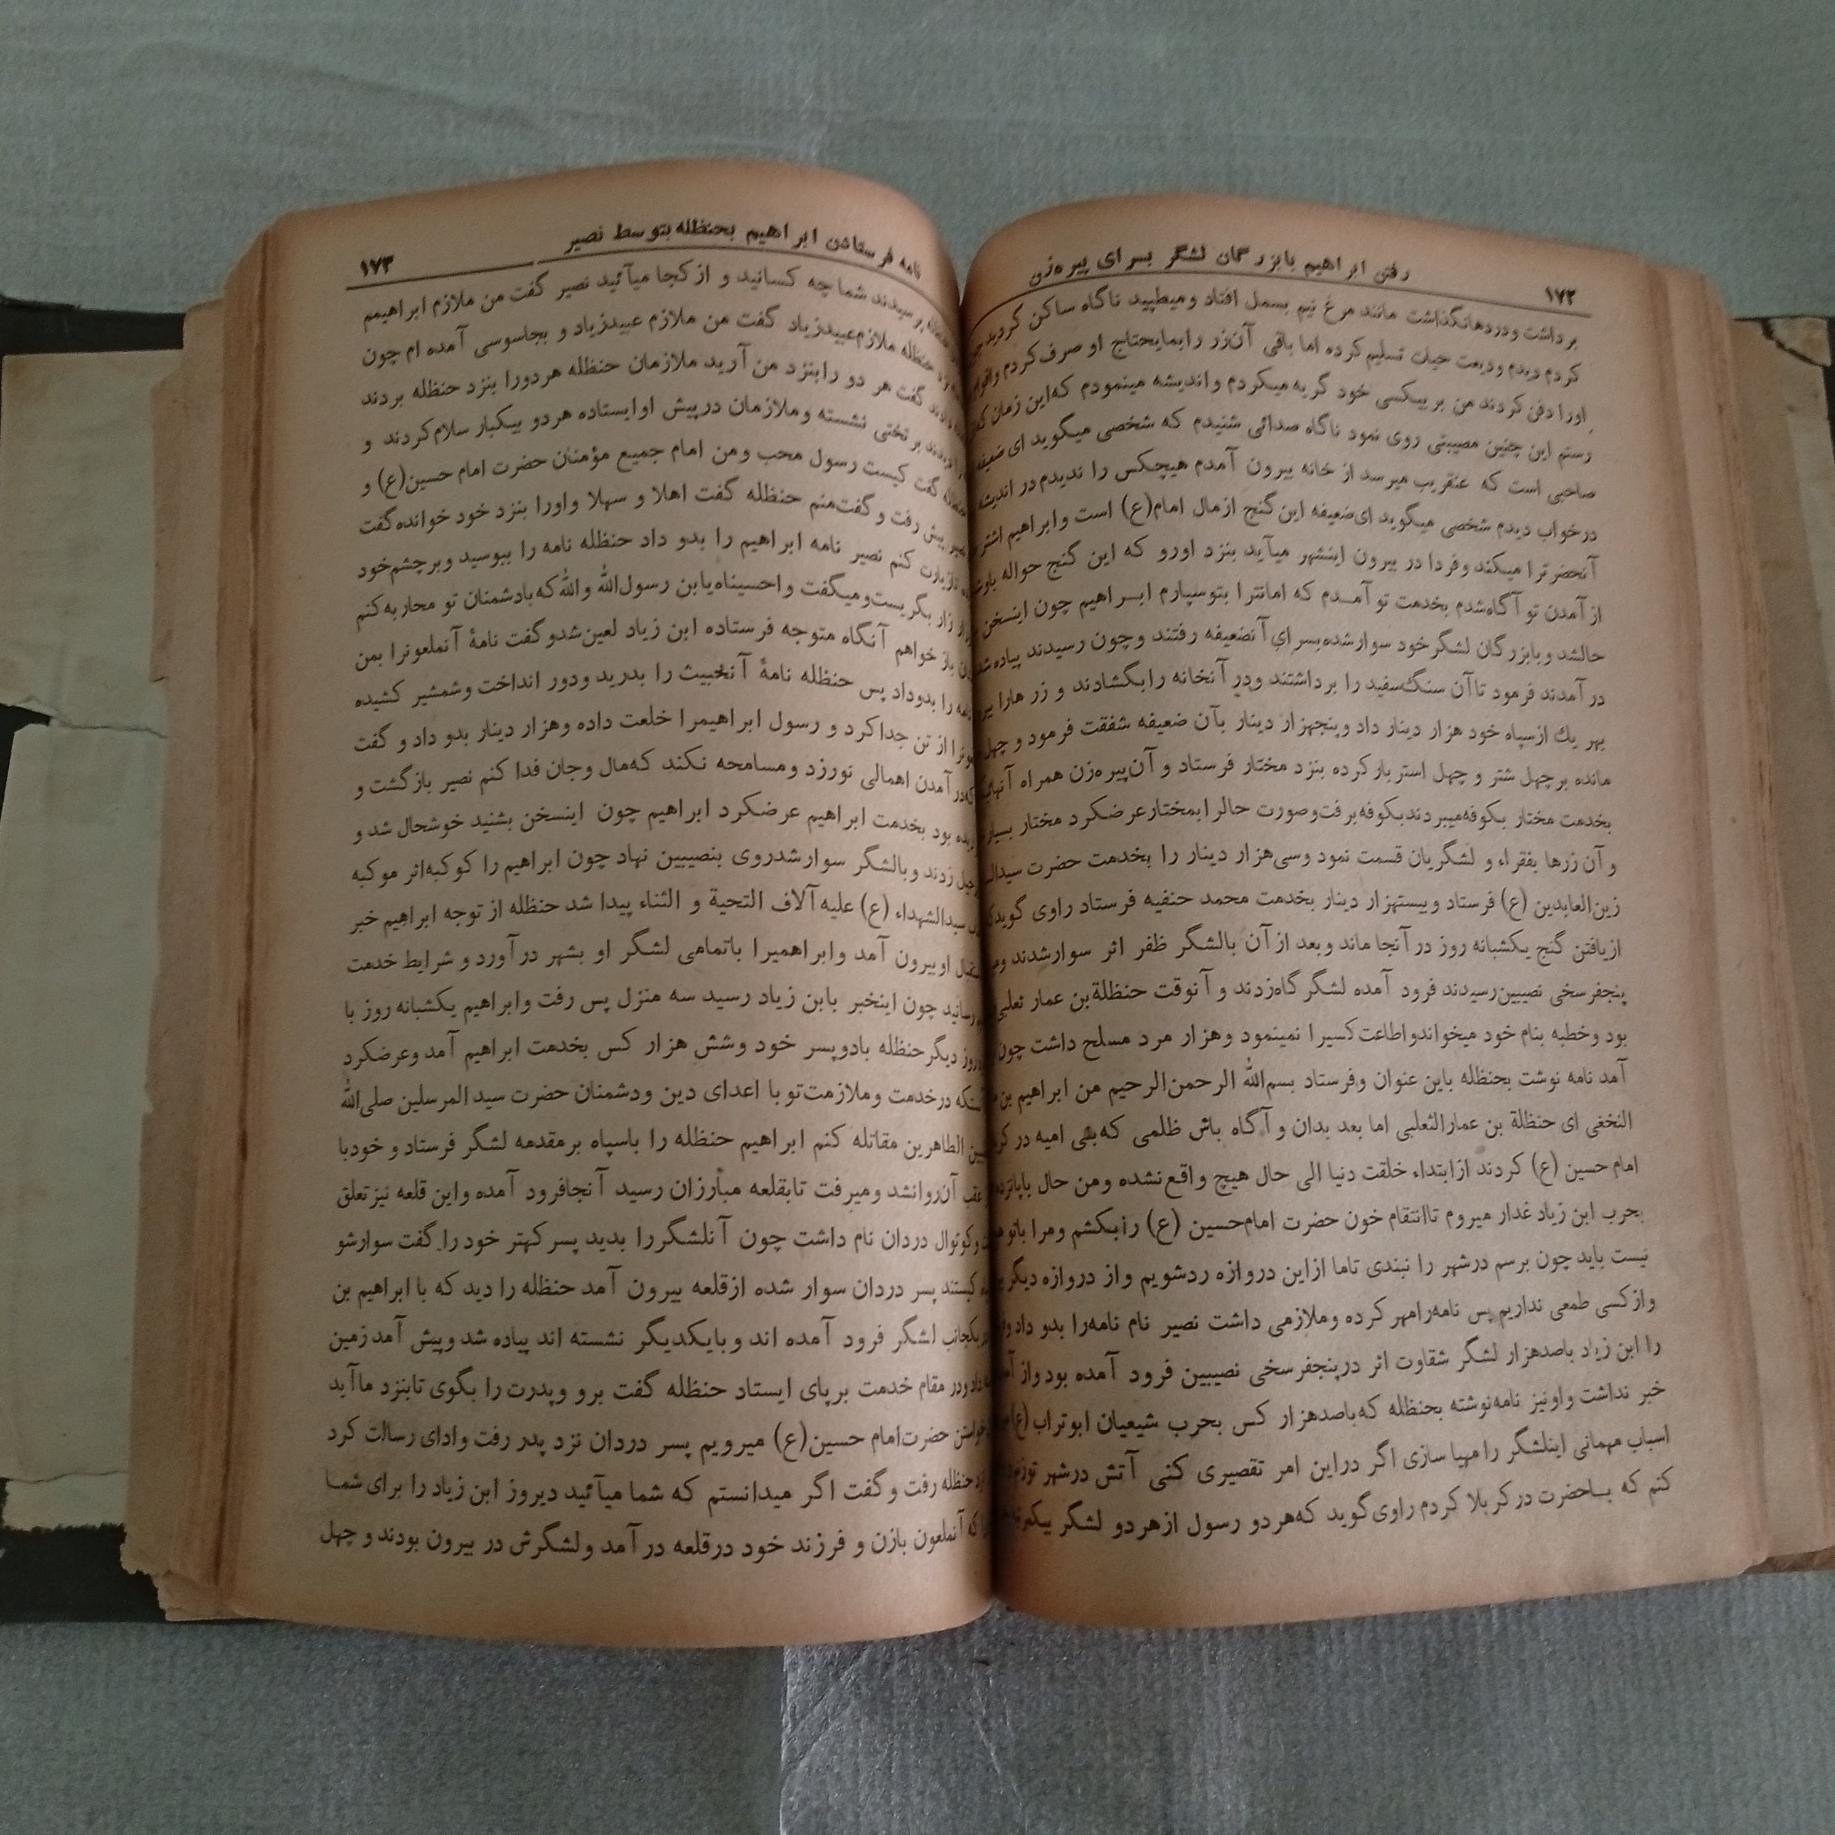 ۱۷۲
رفتن ابراهیم بابزرگان لشگر بسرای پیره‌زن
برداشت و دردهانگذاشت مانند مرغ نیم بسمل افتاد ومیطپید ناگاه ساکن گردید
کردم دیدم ودیعت حیات تسلیم کرده اما باقی آن‌زر رابمایحتاج او صرف‌کردم واقوام
اورا دفن کردند من بر بیکسی خود گریه میکردم واندیشه مینمودم که‌این زمان
رستم این چنین مصیبتی روی نمود ناگاه صدائی شنیدم که شخصی میگوید ای ضعیفه
صاحبی است که عنقریب میرسد از خانه بیرون آمدم هیچکس را ندیدم در اندیشه
درخواب دیدم شخصی میگوید ای‌ضعیفه این‌گنج ازمال امام(ع) است وابراهیم اشتر
آنحضرترا میکند وفردا در بیرون اینشهر میآید بنزد اورو که این گنج حواله باوست
از آمدن تو آگاه‌شدم بخدمت تو آمـدم که امانترا بتوسپارم ابـراهیم چون اینسخن
حالشد وبابزرگان لشگرخود سوارشده‌بسرای آنضعیفه رفتند وچون رسیدند پیاده
در آمدند فرمود تاآن سنگ‌سفید را برداشتند ودر آنخانه رابگشادند و زر هارا
بهر یك ازسپاه خود هزار دینار داد وپنجهزار دینار بآن ضعیفه شفقت فرمود و چهل
مانده برچهل شتر و چهل استر بارکرده بنزد مختار فرستاد و آن‌پیره‌زن همراه
بخدمت مختار بکوفه‌میبردندبکوفه‌برفت‌وصورت حالرابمختارعرضکرد مختار
و آن‌زرها بفقراء و لشگریان قسمت نمود وسی‌هزار دینار را بخدمت حضرت
زین‌العابدین (ع) فرستاد وبیستهزار دینار بخدمت محمد حنفیه فرستاد راوی گوید
ازیافتن گنج یکشبانه روز در آنجا ماند وبعد از آن بالشگر ظفر اثر سوارشدند
پنجفرسخی نصیبین‌رسیدند فرود آمده لشگرگاه‌زدند و آنوقت حنظلة‌بن عمار ثعلبی
بود وخطبه بنام خود میخواندواطاعت‌کسیرا نمینمود وهزار مرد مسلح داشت چون
آمد نامه نوشت بحنظله باین عنوان وفرستاد بسم‌الله الرحمن‌الرحیم من ابراهیم بن
النخغی ای حنظلة بن عمارالثعلبی اما بعد بدان و آگاه باش ظلمی که‌بنی امیه در
امام حسین (ع) کردند ازابتداء خلقت دنیا الی حال هیچ واقع‌نشده ومن حال
بحرب ابن زیاد غدار میروم تاانتقام خون حضرت امام‌حسین (ع) رابکشم ومرا باتو
نیست باید چون برسم درشهر را نبندی تاما ازاین دروازه ردشویم واز دروازه دیگر
وازکسی طمعی نداریم پس نامه‌رامهر کرده وملازمی داشت نصیر نام نامه‌را بدو داد
را ابن زیاد باصدهزار لشگر شقاوت اثر درپنجفرسخی نصیبین فرود آمده بود
خبر نداشت واونیز نامه‌نوشته بحنظله که‌باصدهزار کس بحرب شیعیان ابوتراب(ع)
اسباب مهمانی اینلشگر رامهیا سازی اگر دراین امر تقصیری کنی آتش درشهر
کنم که بـاحضرت درکربلا کردم راوی‌گوید که‌هردو رسول ازهردو لشگر
نامه فرستادن ابراهیم بحنظله بتوسط نصیر
۱۷۳
پرسیدند شما چه کسانید و ازکجا میآئید نصیر گفت من ملازم ابراهیمم
حنظله ملازم‌عبیدزیاد گفت من ملازم عبیدزیاد و بجاسوسی آمده ام چون
گفت هر دو رابنزد من آرید ملازمان حنظله هردورا بنزد حنظله بردند
دیدند بر تختی نشسته وملازمان درپیش اوایستاده هردو بیکبار سلام‌کردند و
گفت کیست رسول محب ومن امام جمیع مؤمنان حضرت امام حسین(ع) و
پیش رفت و گفت‌منم حنظله گفت اهلا و سهلا واورا بنزد خود خوانده‌گفت
زیارت کنم نصیر نامه ابراهیم را بدو داد حنظله نامه را ببوسید وبرچشم‌خود
زار بگریست‌ومیگفت واحسیناه‌یابن رسول‌الله والله‌که‌بادشمنان تو محاربه‌کنم
باز خواهم آنگاه متوجه فرستاده ابن زیاد لعین‌شدوگفت نامهٔ آنملعونرا بمن
را بدوداد پس حنظله نامهٔ آنخبیث را بدرید ودور انداخت وشمشیر کشیده
از تن جداکرد و رسول ابراهیمرا خلعت داده وهزار دینار بدو داد و گفت
در آمدن اهمالی نورزد ومسامحه نکند که‌مال وجان فدا کنم نصیر بازگشت و
بود بخدمت ابراهیم عرضکرد ابراهیم چون اینسخن بشنید خوشحال شد و
زدند وبالشگر سوارشدروی بنصیبین نهاد چون ابراهیم را کوکبه‌اثر موکبه
سیدالشهداء (ع) علیه‌آلاف التحیة و الثناء پیدا شد حنظله از توجه ابراهیم خبر
اوبیرون آمد وابراهمیرا باتمامی لشگر او بشهر درآورد و شرایط خدمت
چون اینخبر بابن زیاد رسید سه منزل پس رفت وابراهیم یکشبانه روز با
روز دیگرحنظله بادوپسر خود وشش هزار کس بخدمت ابراهیم آمد وعرضکرد
که درخدمت وملازمت‌تو با اعدای دین ودشمنان حضرت سید المرسلین صلی‌الله
الطاهرین مقاتله کنم ابراهیم حنظله را باسپاه برمقدمه لشگر فرستاد و خودبا
عقب آن‌روانشد ومیرفت تابقلعه مبارزان رسید آنجافرود آمده واین قلعه نیزتعلق
وکوتوال دردان نام داشت چون آنلشگررا بدید پسرکهتر خود را گفت سوارشو
کیستند پسر دردان سوار شده ازقلعه بیرون آمد حنظله را دید که با ابراهیم بن
بکجانب لشگر فرود آمده اند وبایکدیگر نشسته اند پیاده شد وپیش آمد زمین
داد ودر مقام خدمت برپای ایستاد حنظله گفت برو وپدرت را بگوی تابنزد ماآید
حضرت‌امام حسین(ع) میرویم پسر دردان نزد پدر رفت وادای رسالت کرد
حنظله رفت و گفت اگر میدانستم که شما میآئید دیروز ابن زیاد را برای شما
که آنملعون بازن و فرزند خود درقلعه درآمد ولشگرش در بیرون بودند و چهل